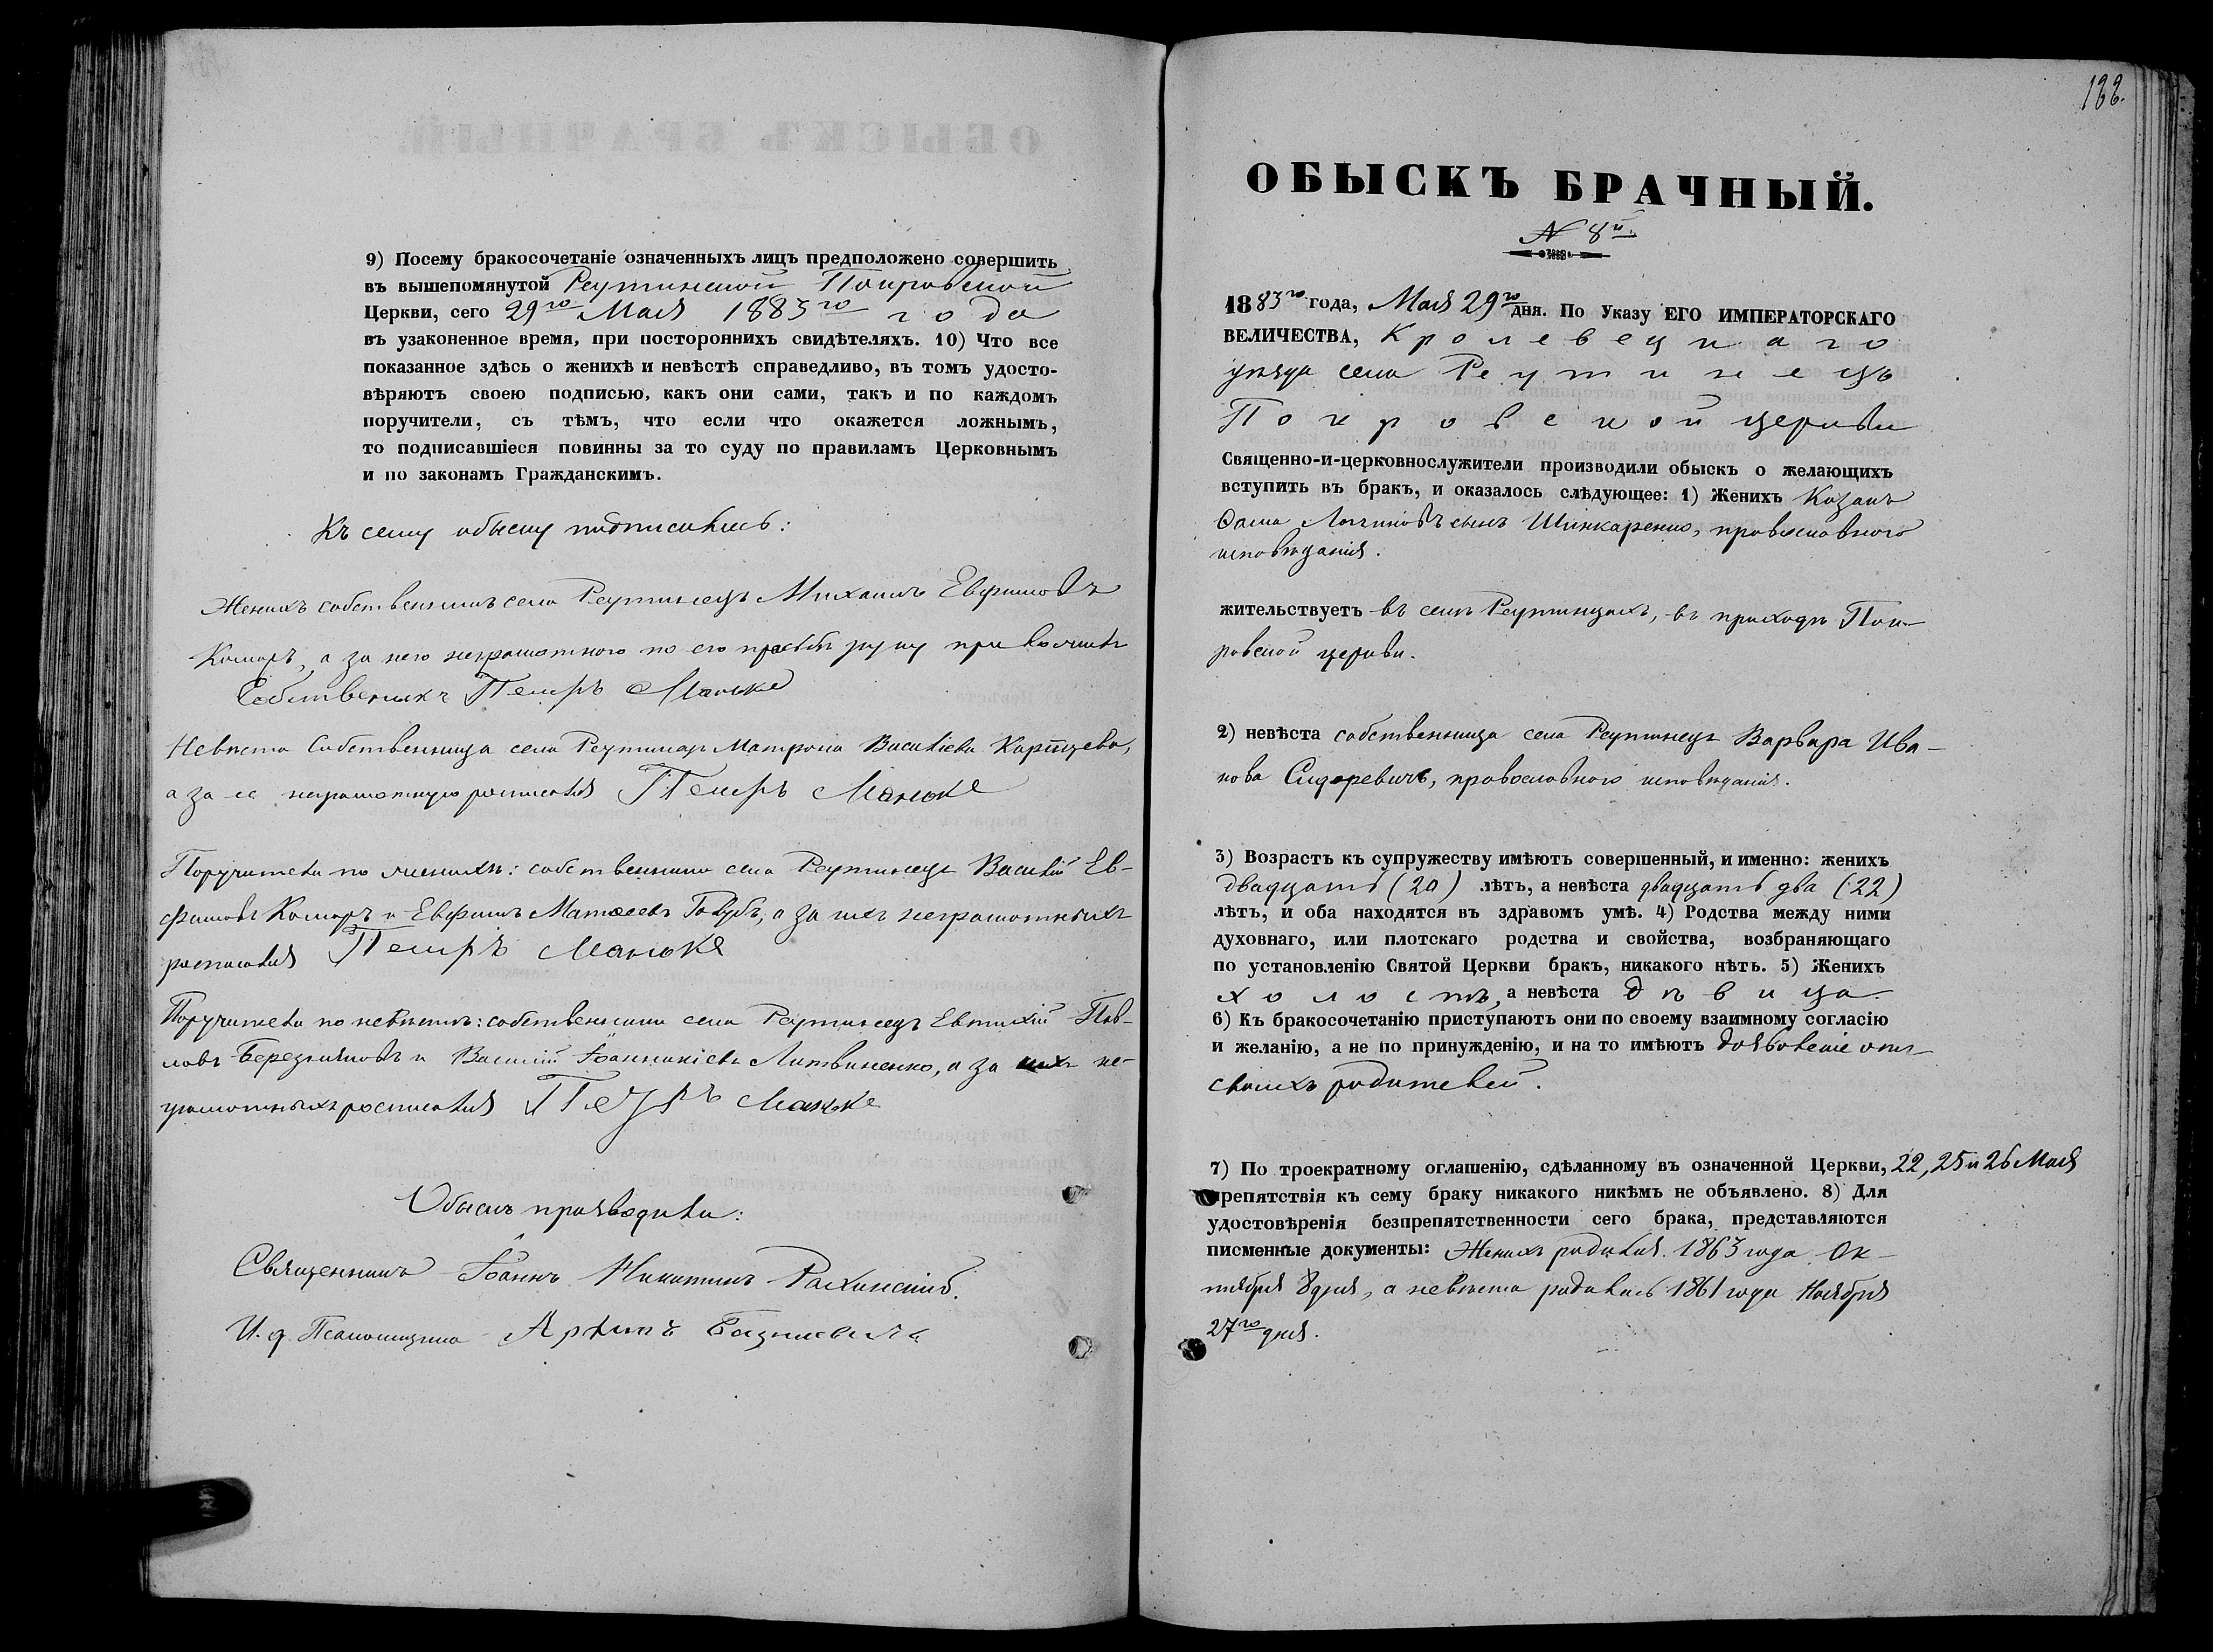 9) Посему бракосочетаніе означенныхъ лицъ предположено совершить
въ вышепомянутой Реутинской Покровской
Церкви, сего 29го Мая 1883го года
въ узаконенное время, при постороннихъ свидѣтеляхъ. 10) Что все
показанное здѣсь о женихѣ и невѣстѣ справедливо, въ томъ удосто-
вѣряютъ своею подписью, какъ они сами, такъ и по каждомъ
поручители, съ тѣмъ, что если что окажется ложнымъ,
то подписавшіеся повинны за то суду по правиламъ Церковнымъ
и по законамъ Гражданскимъ.
Къ сему обыску подписались:
Женихъ собственникъ села Реутинецъ Михаилъ Евфимовъ
Комаръ, а за него неграмотного по его прозьбѣ руку приложилъ
Собственикъ Петръ Манько
Невѣста Собственница села Реутинецъ Матрона Василіева Карпцева,
а за ее неграмотную росписался Петръ Манько
Поручители по женихѣ: собственники села Реутинецъ Василій Ев-
фимовъ Комаръ и Евфимъ Матѳеевъ Голубъ, а за ихъ неграмотныхъ
росписался Петръ Манько
Поручители по невѣстѣ: собственники села Реутинецъ Евтихій Пав-
ловъ Березняковъ и Василій Іоанникіевъ Литвиненко, а за ихъ не-
грамотныхъ росписался Петръ Манько
Обыскъ производили:
Священникъ Іоаннъ Никитинъ
И. д. Псаломщика
122.
ОБЫСКЪ БРАЧНЫЙ.
N 8й.
1883го года, Мая 29го дня. По Указу ЕГО ИМПЕРАТОРСКАГО
ВЕЛИЧЕСТВА, Кролевецкаго
уѣзда села Реутинецъ
Покровской церкви
Священно-и-церковнослужители производили обыскъ о желающихъ
вступить въ бракъ, и оказалось слѣдующее: 1) Женихъ Козакъ
Ѳома Логиновъ сынъ Шинкаренко, православного
исповѣданія.
жительствуетъ въ селѣ Реутинцахъ, въ приходѣ Пок-
ровской церкви.
2) невѣста собственница села Реутинецъ Варвара Ива-
нова Сидоревичъ, православного исповѣданія.
3) Возрастъ къ супружеству имѣютъ совершенный, и именно: женихъ
двадцать (20) лѣтъ, а невѣста двадцать два (22)
лѣтъ, и оба находятся въ здравомъ умѣ. 4) Родства между ними
духовнаго, или плотскаго родства и свойства, возбраняющаго
по установленію Святой Церкви бракъ, никакого нѣтъ. 5) Женихъ
холостъ, а невѣста дѣвица.
6) Къ бракосочетанію приступаютъ они по своему взаимному согласію
и желанію, а не по принужденію, и на то имѣютъ дозволеніе отъ
своихъ родителей.
7) По троекратному оглашенію, сдѣланному въ означенной Церкви, 22, 25 и 26 Мая
препятствія къ сему браку никакого никѣмъ не объявлено. 8) Для
удостовѣренія безпрепятственности сего брака, представляются
писменные документы: Женихъ родился 1863 года Ок-
тября 8 дня, а невѣста родилась 1861 года Ноября
27го дня.